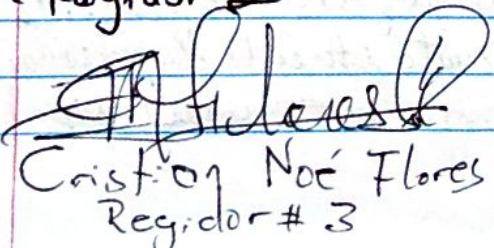 Regidor
Cristian Noé Flores
Regidor # 3